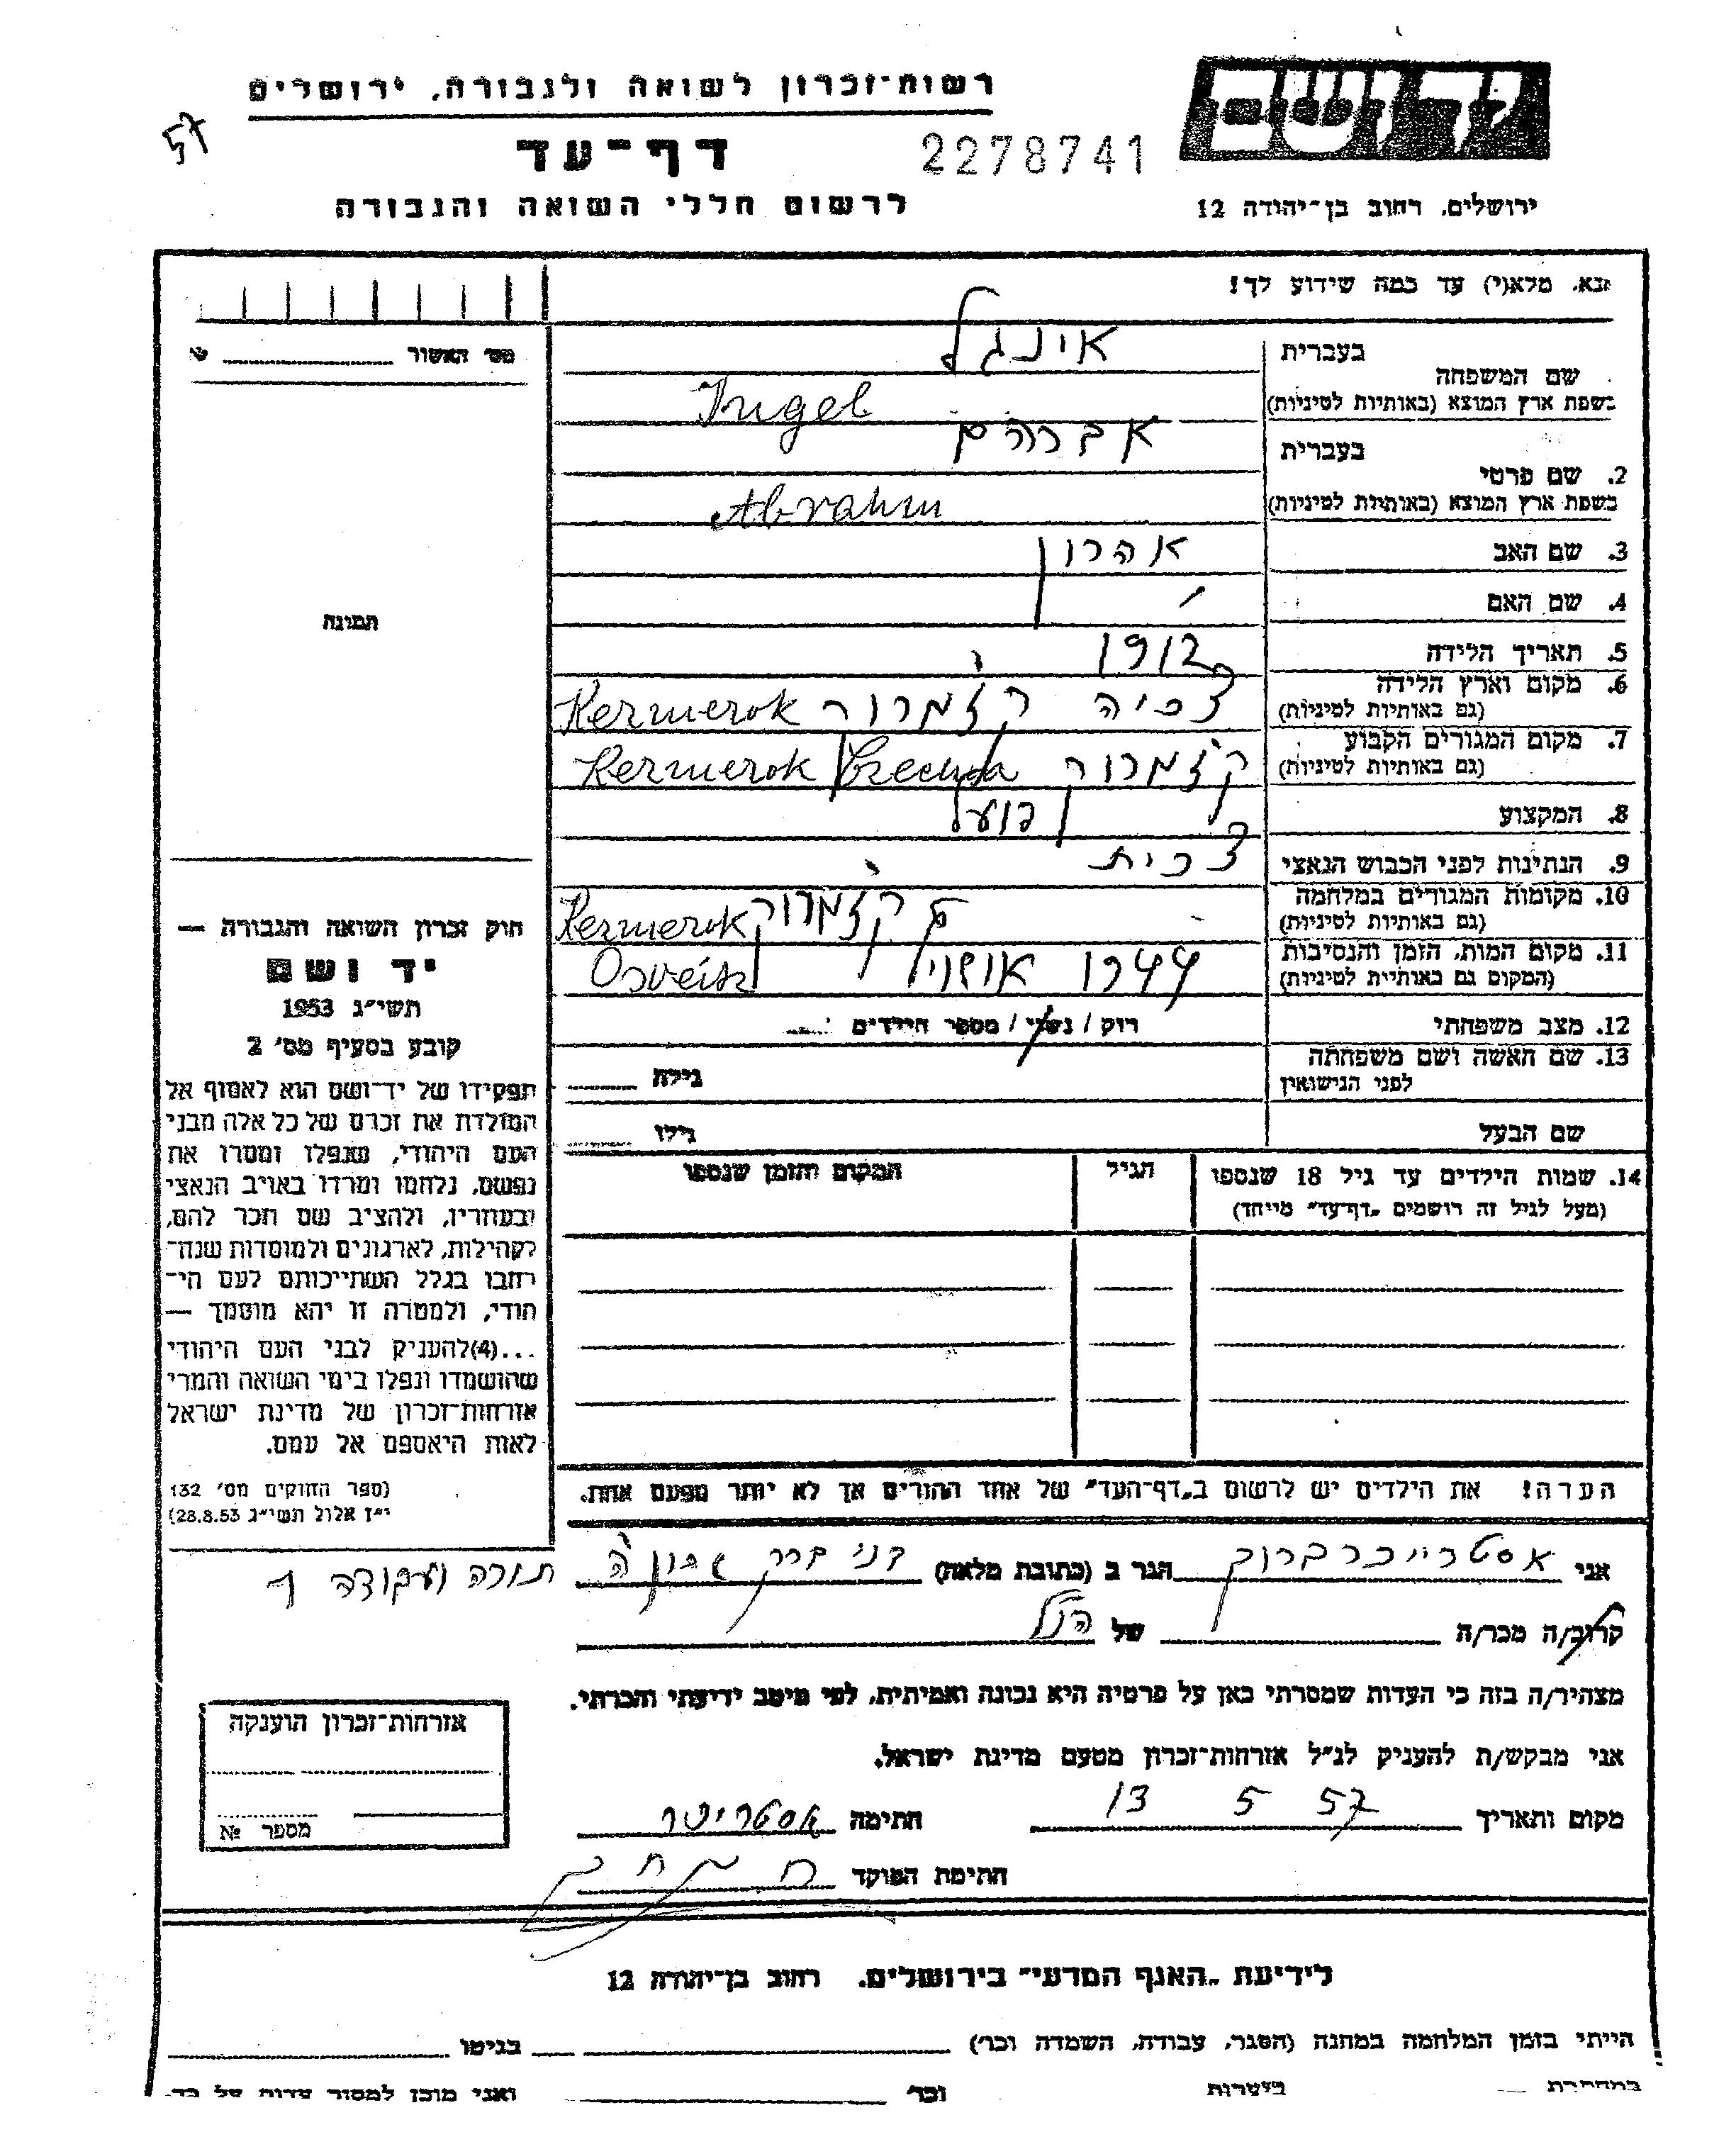 רשות-זכרון לשואה ולגבורה, ירושלים
יד ושם
57
דף-עד
2278741
לרשום חללי השואה והגבורה
ירושלים, רחוב בן-יהודה 12
נא, מלא(י) עד כמה שידוע לך!
מס' האשור № 
שם המשפחה בעברית אינגל
בשפת ארץ המוצא (באותיות לטיניות) Ingel
2. שם פרטי בעברית אברהם
בשפת ארץ המוצא (באותיות לטיניות) Abrahm
3. שם האב אהרון
4. שם האם
תמונה
5. תאריך הלידה 1912
6. מקום וארץ הלידה צכיה קזמרור Kezmerok
(גם באותיות לטיניות)
7. מקום המגורים הקבוע קזמרור Kezmerok
(גם באותיות לטיניות)
8. המקצוע פועל
9. הנתינות לפני הכבוש הנאצי צכית
10. מקומות המגורים במלחמה קזמרור Kezmerok
(גם באותיות לטיניות)
11. מקום המות, הזמן והנסיבות 1944 Osveits
(המקום גם באותיות לטיניות)
12. מצב משפחתי רווק / נשוי / מספר הילדים
13. שם האשה ושם משפחתה
לפני הנישואין גילה
שם הבעל גילו
14. שמות הילדים עד גיל 18 שנספו הגיל המקום והזמן שנספו
(מעל לגיל זה רושמים "דף-עד" מיוחד)
הערה! את הילדים יש לרשום ב"דף-העד" של אחד ההורים אך לא יותר מפעם אחת.
חוק זכרון השואה והגבורה —
יד ושם
תשי"ג 1953
קובע בסעיף מס' 2
תפקידו של יד-ושם הוא לאסוף אל
המולדת את זכרם של כל אלה מבני
העם היהודי, שנפלו ומסרו את
נפשם, נלחמו ומרדו באויב הנאצי
ובעוזריו, ולהציב שם וזכר להם,
לקהילות, לארגונים ולמוסדות שנח-
רבו בגלל השתייכותם לעם הי-
הודי, ולמטרה זו יהא מוסמך —
...(4)להעניק לבני העם היהודי
שהושמדו ונפלו בימי השואה והמרי
אזרחות-זכרון של מדינת ישראל
לאות היאספם אל עמם.
(ספר החוקים מס' 132
י"ז אלול תשי"ג 28.8.53)
אני הגר ב (כתובת מלאה) בני ברק תורה ועבודה
קרוב/ה מכר/ה של הנ"ל
מצהיר/ה בזה כי העדות שמסרתי כאן על פרטיה היא נכונה ואמיתית, לפי מיטב ידיעתי והכרתי.
אני מבקש/ת להעניק לנ"ל אזרחות-זכרון מטעם מדינת ישראל.
מקום ותאריך 13 5 57 חתימה
חתימת הפוקד
אזרחות-זכרון הוענקה
מספר №
לידיעת "האגף המדעי" בירושלים. רחוב בן-יהודה 12
הייתי בזמן המלחמה במחנה (הסגר, עבודה, השמדה וכו') בגיטו
במחתרת ביערות וכו' ואני מוכן למסור עדות על כך.